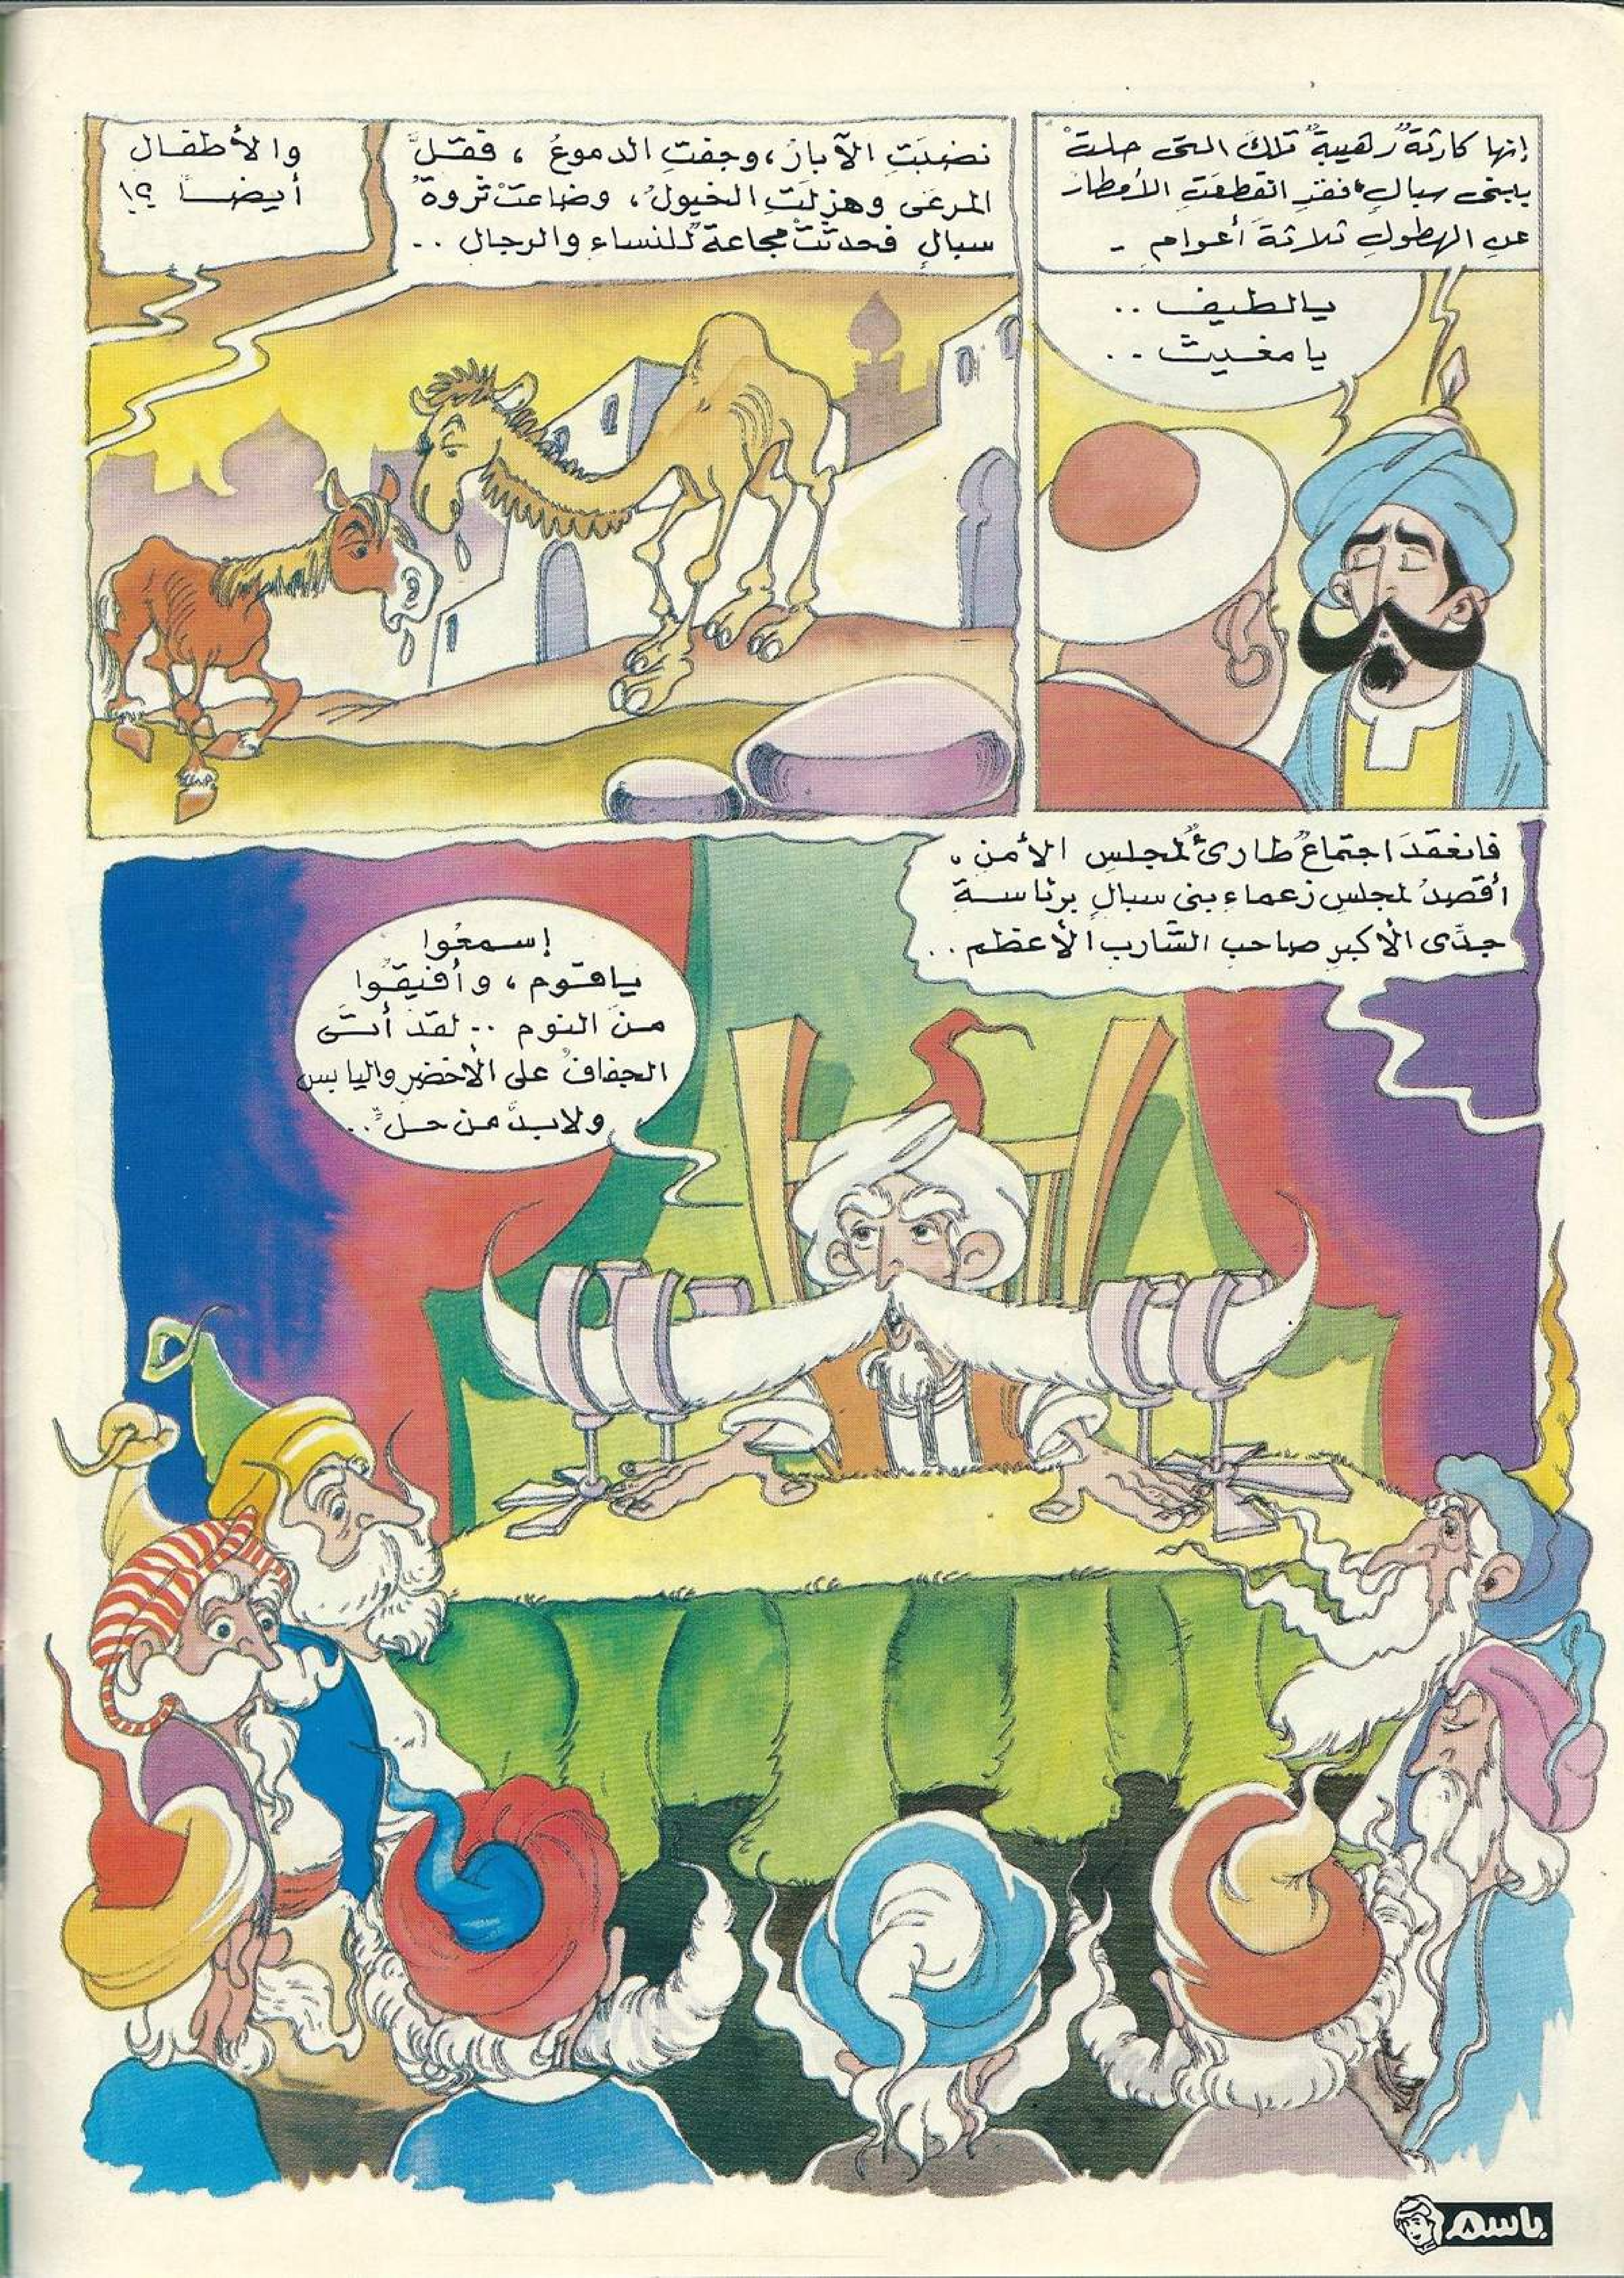 إنها كارثةٌ رهيبةٌ تلكَ التى حلتْ
ببنى سبالٍ، فقد انقطعَتِ الأمطارُ
عن الهطولِ ثلاثةَ أعوامٍ -
يالطيف ..
يا مغيث ..
نضبَتِ الآبارُ، وجفتِ الدموعُ ، فقلَّ
المرعَى وهزلَتِ الخيولُ، وضاعتْ ثروةُ
سبالٍ فحدثَتْ مجاعةٌ للنساءِ والرجالِ ..
والأطفال
أيضــاً ؟!
فانعقدَ اجتماعٌ طارئٌ لمجلسِ الأمنِ ،
أقصدُ لمجلسِ زعماءِ بنى سبالٍ برئاسـةِ
جدِّى الأكبرِ صاحبِ الشاربِ الأعظمِ ..
إسـمعُوا
ياقـوم ، وأفيقـُوا
مـنَ النوم .. لقدْ أتـَى
الجفافُ على الأخضرِ واليابسِ
ولابـدَّ مـن حـلٍّ ..
باسم
٨